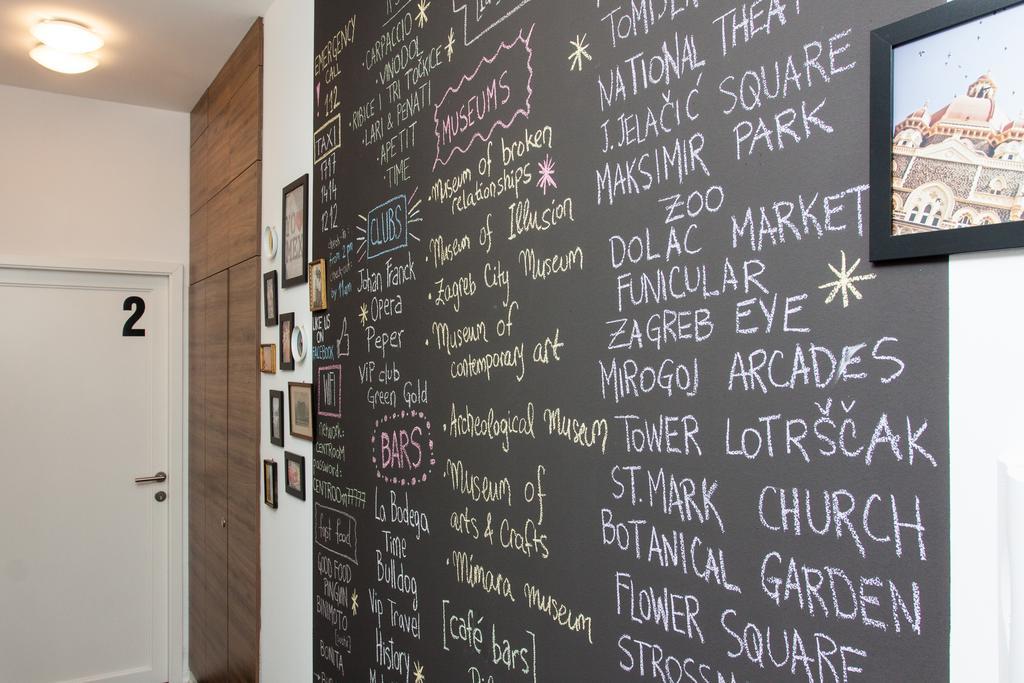 2
EMERGENCY
CALL
! 112
TAXI
1717
1414
1212
from 2 pm
by 11am
LIKE US
ON
FACEBOOK
WIFI
network:
CENTROOM
password:
CENTROOM7777
fast food
GOOD FOOD
PINGVIN
BONITA
• CARPACCIO
• VINODOL
• RIBICE I TRI TOČKICE
• LARI & PENATI
• APETIT
TIME
CLUBS
Johan Franck
Opera
Peper
VIP club
Green Gold
BARS
La Bodega
Time
Bulldog
Vip Travel
History
MUSEUMS
• Museum of broken
relationships
• Museum of Illusion
• Zagreb City Museum
• Museum of
contemporary art
• Archeological museum
• Museum of
arts & crafts
• Mimara museum
[café bars]
NATIONAL THEAT
J.JELAČIĆ SQUARE
MAKSIMIR PARK
ZOO
DOLAC MARKET
FUNICULAR
ZAGREB EYE
MIROGOJ ARCADES
TOWER LOTRŠČAK
ST.MARK CHURCH
BOTANICAL GARDEN
FLOWER SQUARE
STROSSM